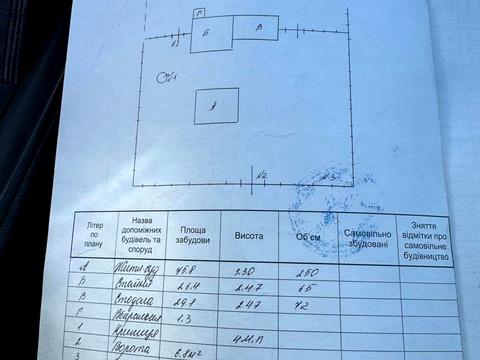 Г
№2
Б
В
№1
А
№2
№3
Літер по плану
Назва допоміжних будівель та споруд
Площа забудови
Висота
Об'єм
Самовільно збудовані
Зняття відмітки про самовільне будівництво
А Житл. буд 45.8 250
Б Стайня 26.4 2.47 65
В Стодола 29.1 2.47 72
Г Вбиральня 1.3
1 Криниця
2 Ворота 4 м.п
3 6.8м²